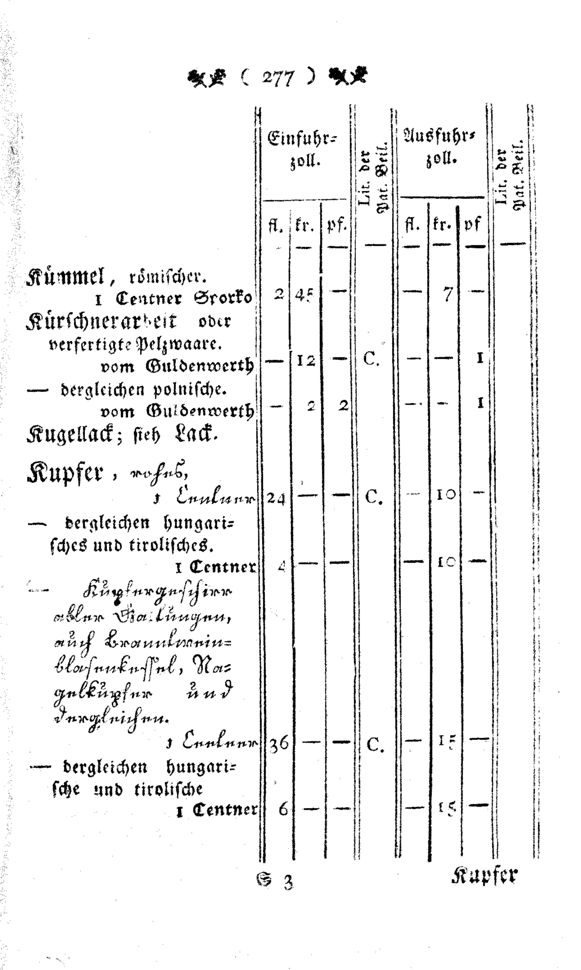 ( 277 )
Einfuhr=
zoll.
Lit. der
Pat. Beil.
Ausfuhr=
zoll.
Lit. der
Pat. Beil.
fl. kr. pf. fl. kr. pf
— — — — — — — —
Kümmel, römischer.
1 Centner Sporko 2 45 — — 7 —
Kürschnerarbeit oder
verfertigte Pelzwaare.
vom Guldenwerth — 12 — C. — — 1
— dergleichen polnische.
vom Guldenwerth — 2 2 — — 1
Kugellack; sieh Lack.
Kupfer, rohes,
1 Centner 24 — — C. — 10 —
— dergleichen hungari=
sches und tirolisches.
1 Centner 4 — — — 10 —
— Kupfergeschirr
aller Gattungen,
auch Branntwein=
blasenkessel, Na=
gelkupfer und
dergleichen.
1 Centner 36 — — C. — 15 —
— dergleichen hungari=
sche und tirolische
1 Centner 6 — — — 15 —
S 3 Kupfer